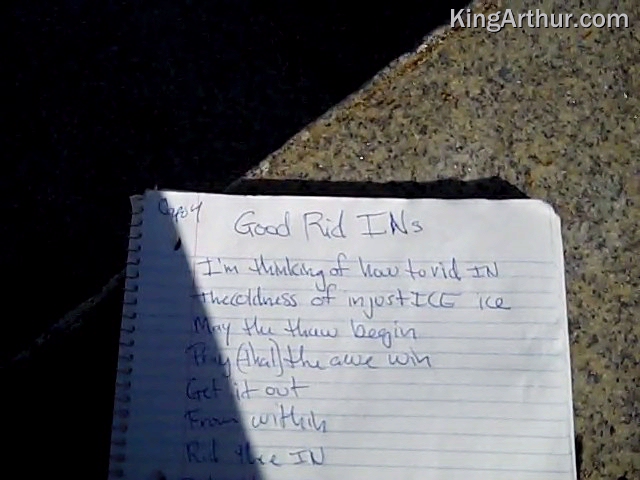 KingArthur.com
Copy
Good Rid INs
I'm thinking of how to rid IN
The coldness of injustICE ice
May the thaw begin
Pray (that) the awe win
Get it out
From within
Rid thee IN